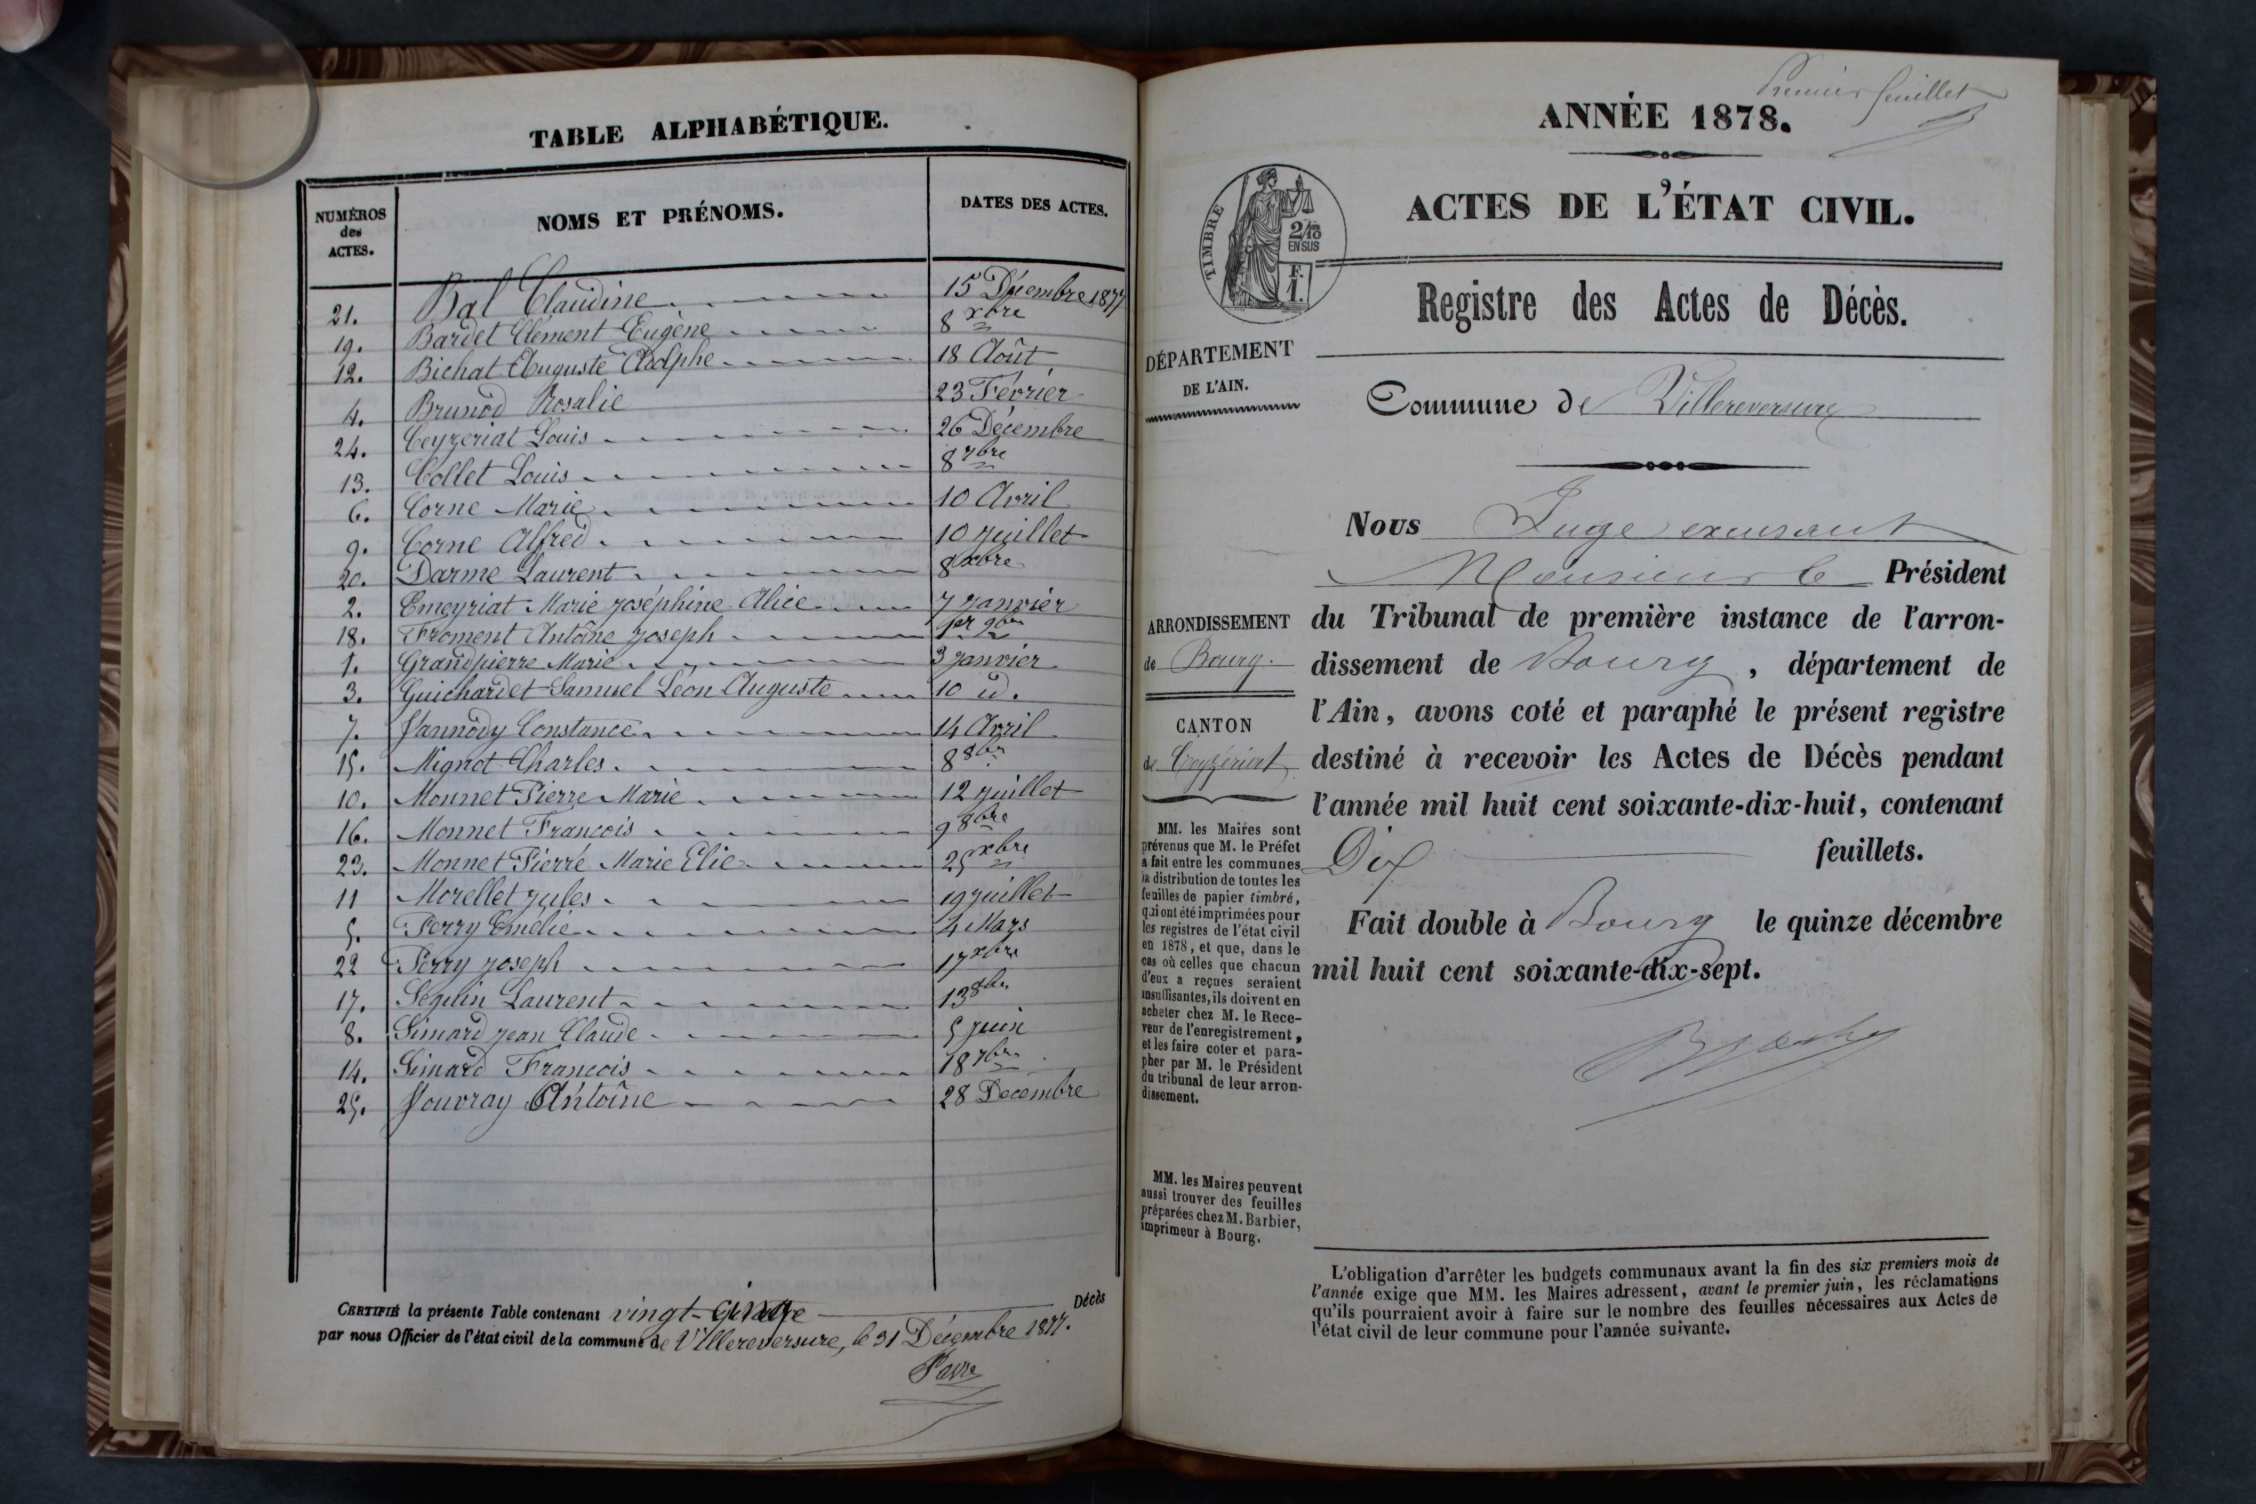 TABLE ALPHABÉTIQUE.
NUMÉROS des ACTES. NOMS ET PRÉNOMS. DATES DES ACTES.
21. Bal Claudine 15 Décembre 1877
19. Bardet Clément Eugène 8 xbre
12. Bichat Auguste Adolphe 18 Août
4. Brunod Rosalie 23 Février
24. Ceyzeriat Louis 26 Décembre
13. Collet Louis 8 7bre
6. Corne Marie 10 Avril
9. Corne Alfred 10 Juillet
20. Darme Laurent 8 xbre
2. Emeyriat Marie Joséphine Alice 7 Janvier
18. Froment Antoîne Joseph 1er 9bre
1. Grandpierre Marie 3 Janvier
3. Guichardet Samuel Léon Auguste 10 id.
7. Jannody Constance 14 Avril
15. Mignot Charles 8 8bre
10. Monnet Pierre Marie 12 Juillet
16. Monnet François 9 8bre
23. Monnet Pierre Marie Elie 25 xbre
11 Morellet Jules 19 Juillet
5. Perry Emélie 4 Mars
22 Perry Joseph 17 xbre
17. Séguin Laurent 13 8bre
8. Simard Jean Claude 5 Juin
14. Simard François 18 7bre
25. Jouvray Antoîne 28 Décembre
CERTIFIÉ la présente Table contenant vingt-cinq Décès
par nous Officier de l'état civil de la commune de Villereversure, le 31 Décembre 1877.
Premier feuillet
ANNÉE 1878.
ACTES DE L'ÉTAT CIVIL.
TIMBRE
2/10 EN SUS
F. 1.
Registre des Actes de Décès.
DÉPARTEMENT
DE L'AIN.
Commune de Villereversure
Nous Juge excusant
Monsieur le Président
du Tribunal de première instance de l'arron-
dissement de Bourg, département de
l'Ain, avons coté et paraphé le présent registre
destiné à recevoir les Actes de Décès pendant
l'année mil huit cent soixante-dix-huit, contenant
Dix feuillets.
Fait double à Bourg le quinze décembre
mil huit cent soixante-dix-sept.
ARRONDISSEMENT
de Bourg.
CANTON
de Ceyzériat
MM. les Maires sont
prévenus que M. le Préfet
a fait entre les communes
la distribution de toutes les
feuilles de papier timbré,
qui ont été imprimées pour
les registres de l'état civil
en 1878, et que, dans le
cas où celles que chacun
d'eux a reçues seraient
insuffisantes, ils doivent en
acheter chez M. le Rece-
veur de l'enregistrement,
et les faire coter et para-
pher par M. le Président
du tribunal de leur arron-
dissement.
MM. les Maires peuvent
aussi trouver des feuilles
préparées chez M. Barbier,
imprimeur à Bourg.
L'obligation d'arrêter les budgets communaux avant la fin des six premiers mois de
l'année exige que MM. les Maires adressent, avant le premier juin, les réclamations
qu'ils pourraient avoir à faire sur le nombre des feuilles nécessaires aux Actes de
l'état civil de leur commune pour l'année suivante.